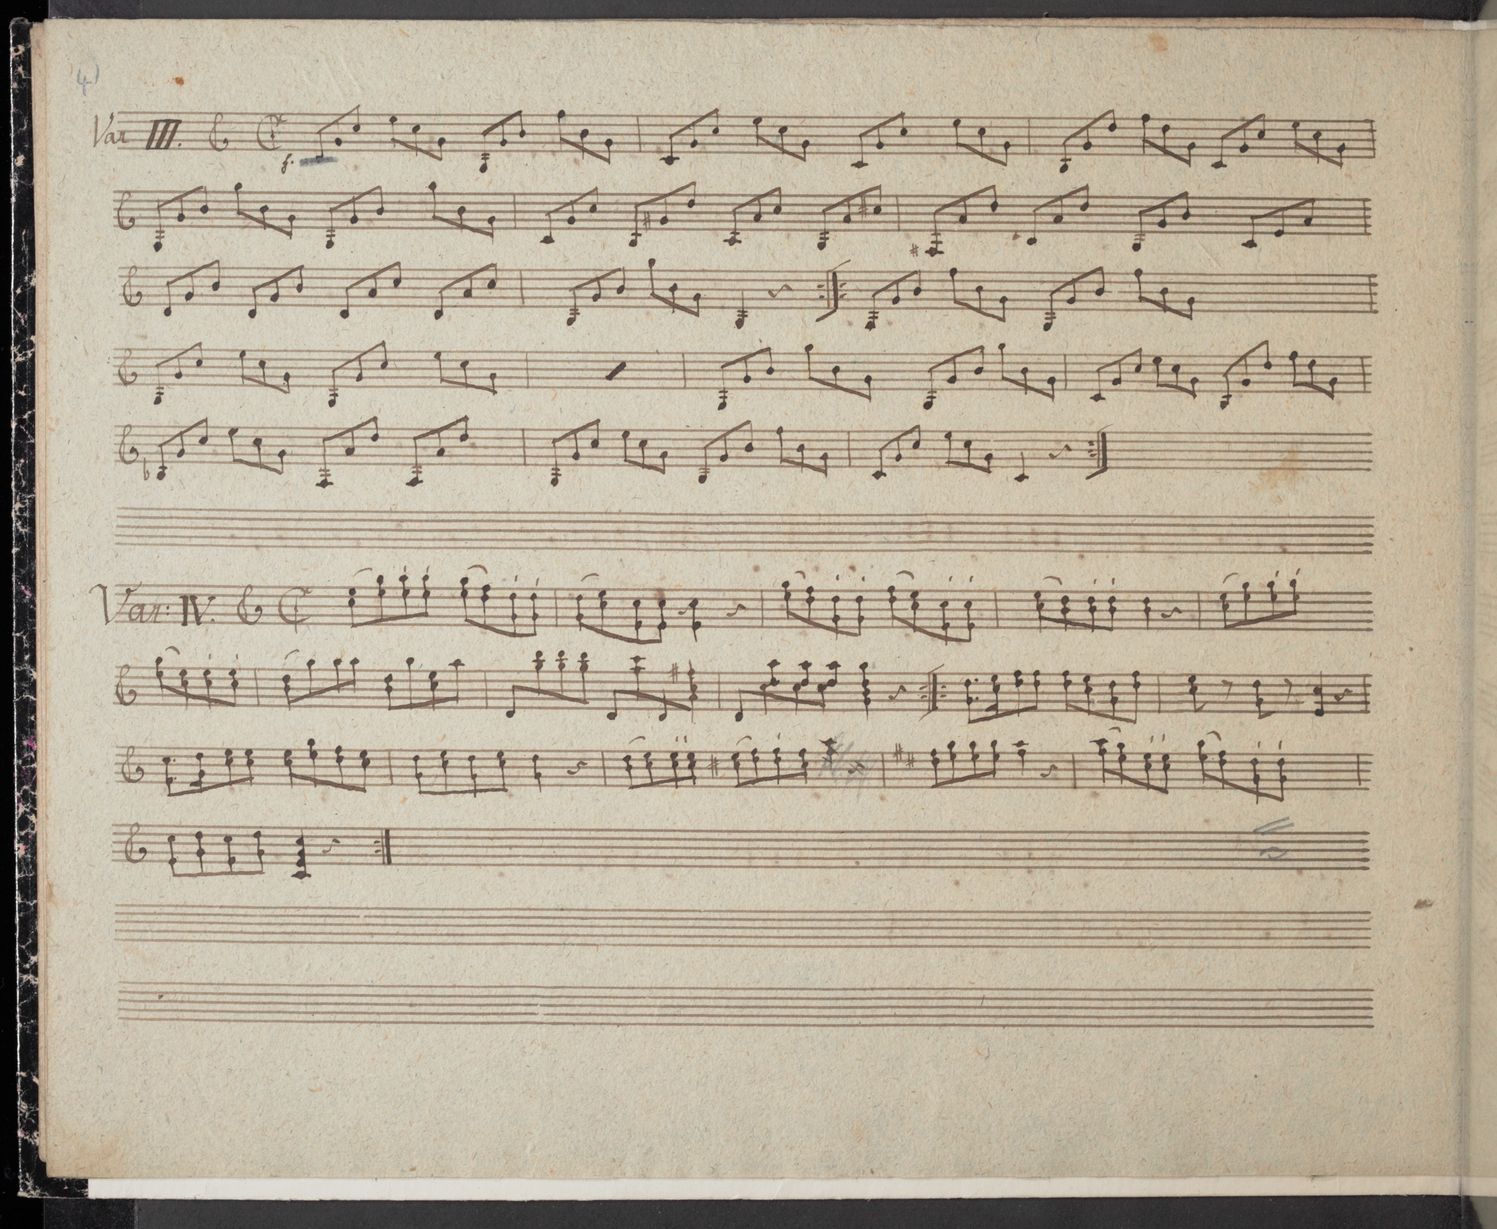 4)
Var III.
f.
Var: IV.